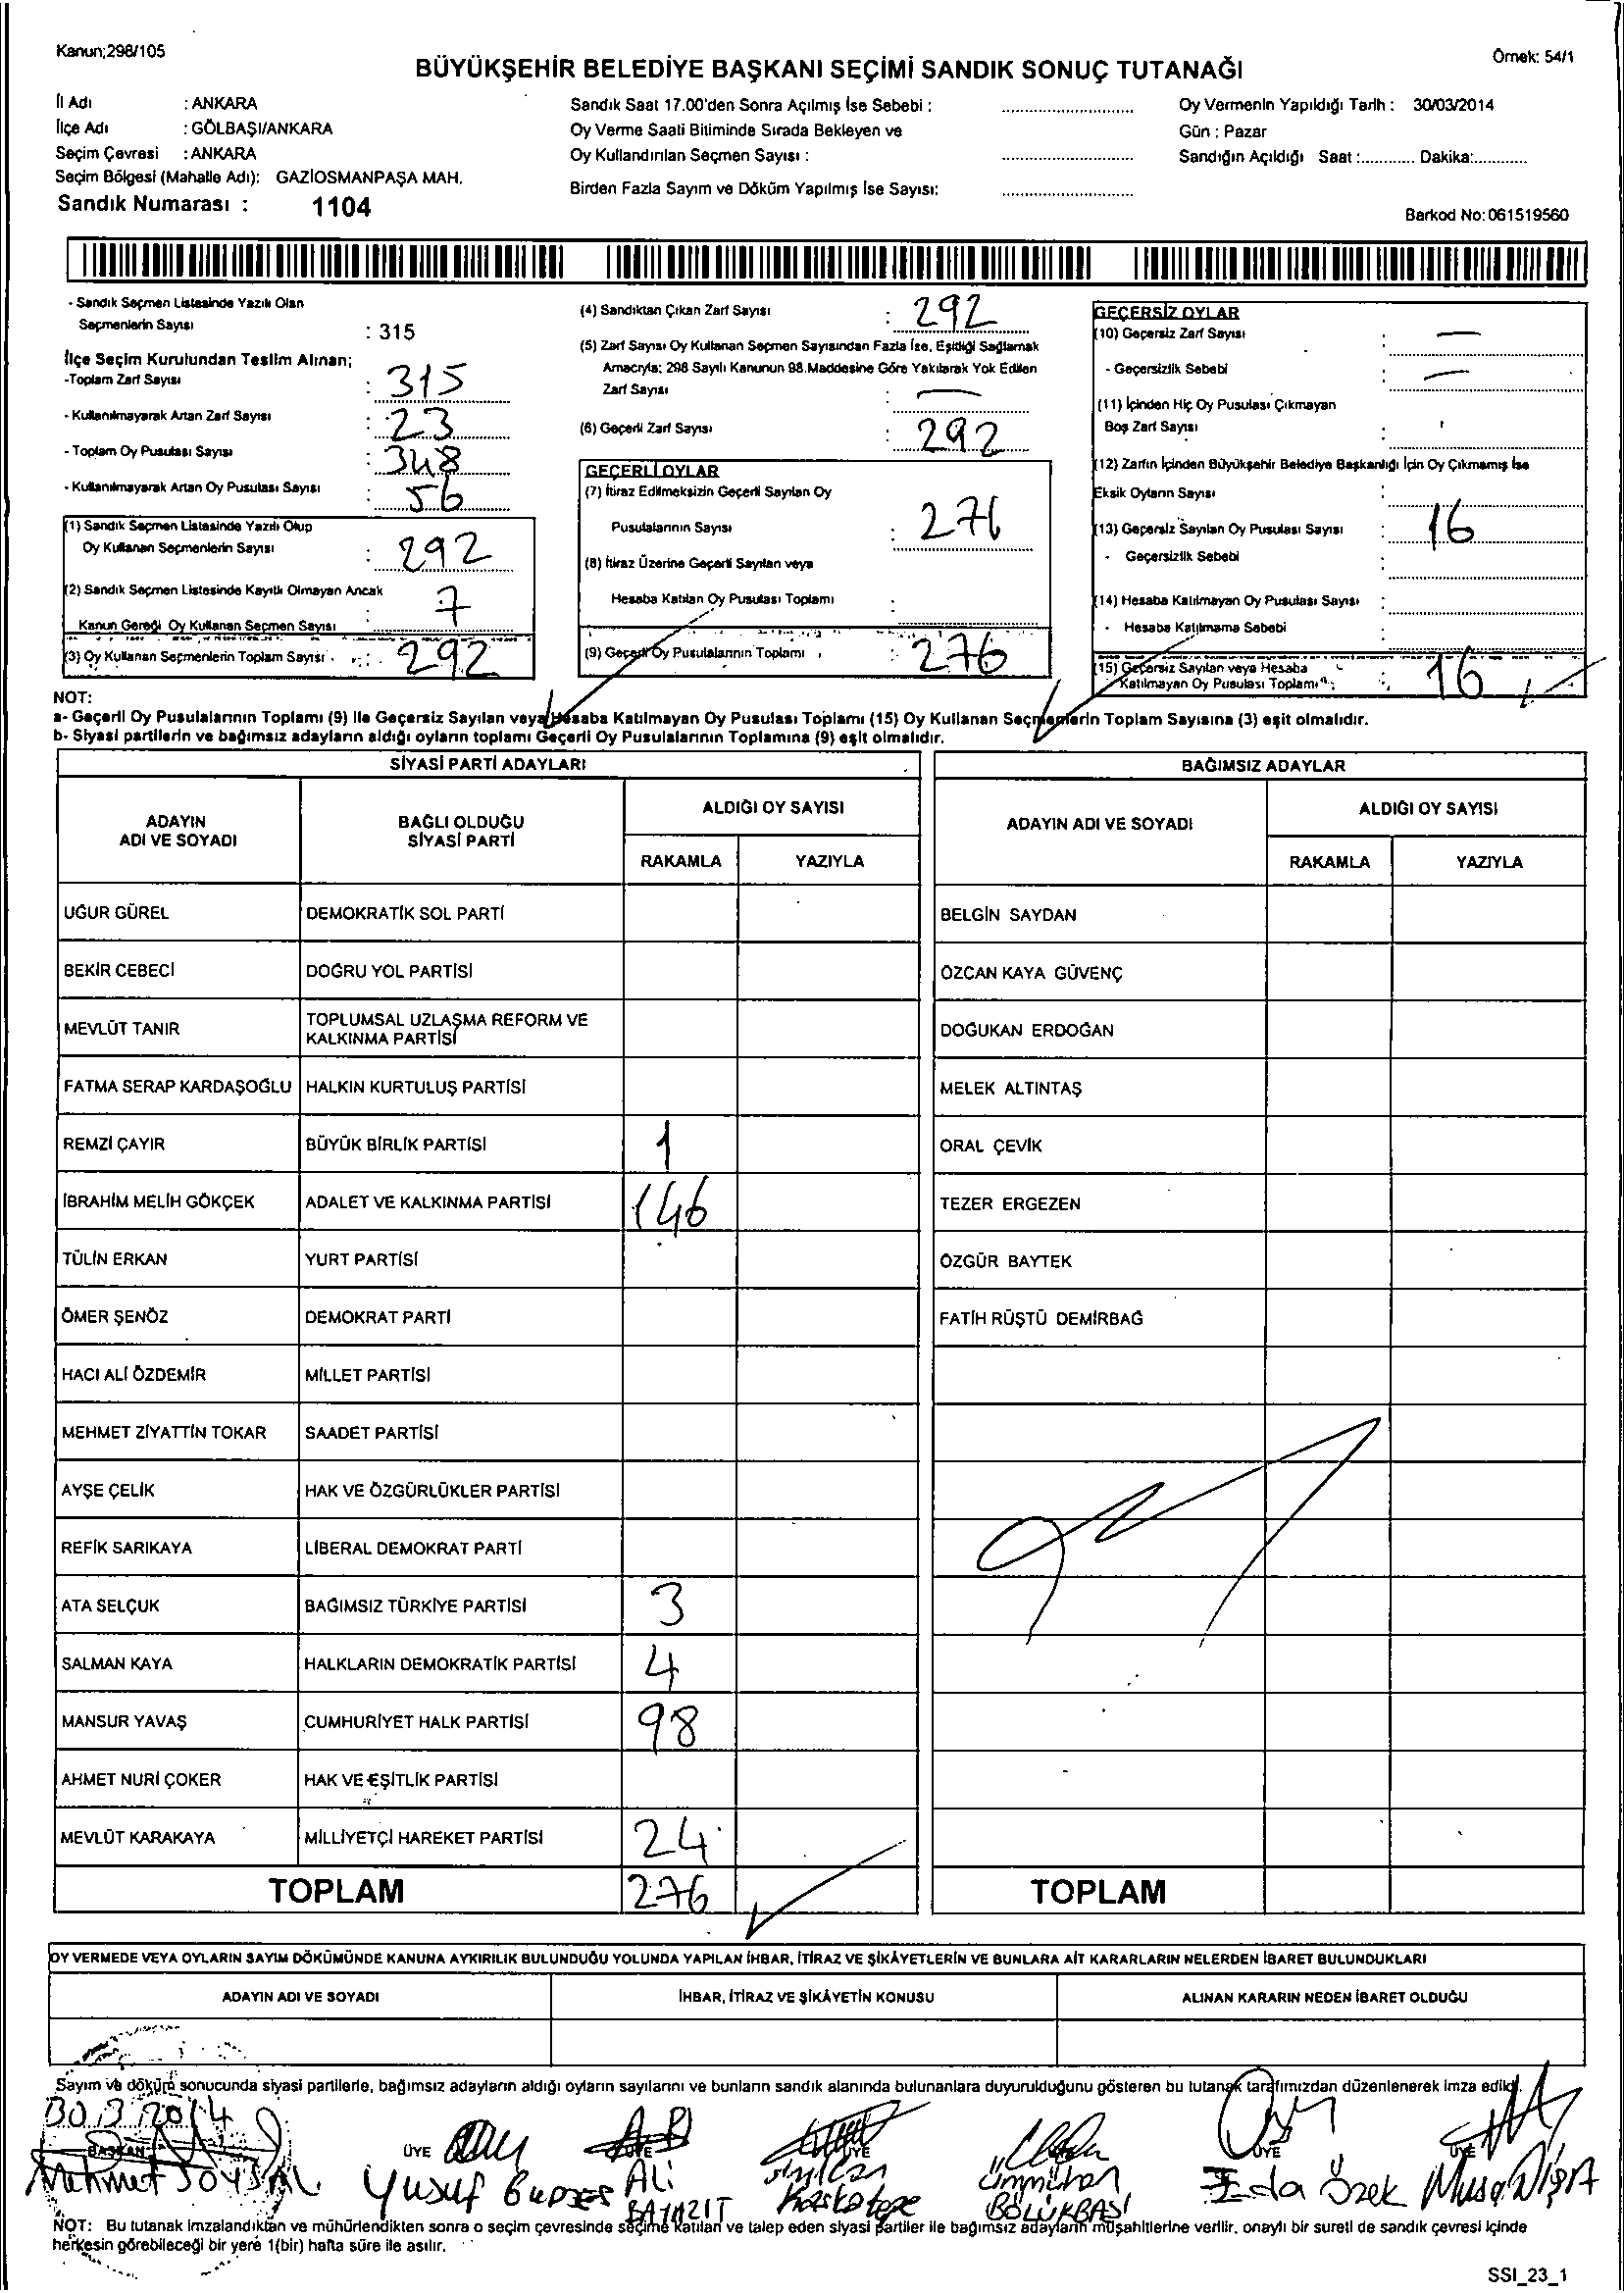 Kanun;298/105
Örnek: 54/1
BÜYÜKŞEHİR BELEDİYE BAŞKANI SEÇİMİ SANDIK SONUÇ TUTANAĞI
İl Adı : ANKARA
İlçe Adı : GÖLBAŞI/ANKARA
Seçim Çevresi : ANKARA
Seçim Bölgesi (Mahalle Adı): GAZİOSMANPAŞA MAH.
Sandık Numarası : 1104
Sandık Saat 17.00'den Sonra Açılmış İse Sebebi :
Oy Verme Saati Bitiminde Sırada Bekleyen ve
Oy Kullandırılan Seçmen Sayısı :
Birden Fazla Sayım ve Döküm Yapılmış İse Sayısı:
Oy Vermenin Yapıldığı Tarih : 30/03/2014
Gün : Pazar
Sandığın Açıldığı Saat :............ Dakika:............
Barkod No:061519560
- Sandık Seçmen Listesinde Yazılı Olan
Seçmenlerin Sayısı : 315
İlçe Seçim Kurulundan Teslim Alınan;
-Toplam Zarf Sayısı : 315
- Kullanılmayarak Artan Zarf Sayısı : 23
- Toplam Oy Pusulası Sayısı : 348
- Kullanılmayarak Artan Oy Pusulası Sayısı : 56
(1) Sandık Seçmen Listesinde Yazılı Olup
Oy Kullanan Seçmenlerin Sayısı : 292
(2) Sandık Seçmen Listesinde Kayıtlı Olmayan Ancak
Kanun Gereği Oy Kullanan Seçmen Sayısı : 7
(3) Oy Kullanan Seçmenlerin Toplam Sayısı : 292
(4) Sandıktan Çıkan Zarf Sayısı : 292
(5) Zarf Sayısı Oy Kullanan Seçmen Sayısından Fazla İse, Eşitliği Sağlamak
Amacıyla; 298 Sayılı Kanunun 98.Maddesine Göre Yakılarak Yok Edilen
Zarf Sayısı : —
(6) Geçerli Zarf Sayısı : 292
GEÇERLİ OYLAR
(7) İtiraz Edilmeksizin Geçerli Sayılan Oy
Pusulalarının Sayısı : 276
(8) İtiraz Üzerine Geçerli Sayılan veya
Hesaba Katılan Oy Pusulası Toplamı :
(9) Geçerli Oy Pusulalarının Toplamı : 276
GEÇERSİZ OYLAR
(10) Geçersiz Zarf Sayısı : —
- Geçersizlik Sebebi : —
(11) İçinden Hiç Oy Pusulası Çıkmayan
Boş Zarf Sayısı :
(12) Zarfın İçinden Büyükşehir Belediye Başkanlığı İçin Oy Çıkmamış İse
Eksik Oyların Sayısı :
(13) Geçersiz Sayılan Oy Pusulası Sayısı : 16
- Geçersizlik Sebebi :
(14) Hesaba Katılmayan Oy Pusulası Sayısı :
- Hesaba Katılmama Sebebi :
(15) Geçersiz Sayılan veya Hesaba
Katılmayan Oy Pusulası Toplamı : 16
NOT:
a- Geçerli Oy Pusulalarının Toplamı (9) ile Geçersiz Sayılan veya Hesaba Katılmayan Oy Pusulası Toplamı (15) Oy Kullanan Seçmenlerin Toplam Sayısına (3) eşit olmalıdır.
b- Siyasi partilerin ve bağımsız adayların aldığı oyların toplamı Geçerli Oy Pusulalarının Toplamına (9) eşit olmalıdır.
SİYASİ PARTİ ADAYLARI
ADAYIN ADI VE SOYADI
BAĞLI OLDUĞU SİYASİ PARTİ
ALDIĞI OY SAYISI
RAKAMLA YAZIYLA
UĞUR GÜREL DEMOKRATİK SOL PARTİ
BEKİR CEBECİ DOĞRU YOL PARTİSİ
MEVLÜT TANIR TOPLUMSAL UZLAŞMA REFORM VE
KALKINMA PARTİSİ
FATMA SERAP KARDAŞOĞLU HALKIN KURTULUŞ PARTİSİ
REMZİ ÇAYIR BÜYÜK BİRLİK PARTİSİ 1
İBRAHİM MELİH GÖKÇEK ADALET VE KALKINMA PARTİSİ 146
TÜLİN ERKAN YURT PARTİSİ
ÖMER ŞENÖZ DEMOKRAT PARTİ
HACI ALİ ÖZDEMİR MİLLET PARTİSİ
MEHMET ZİYATTİN TOKAR SAADET PARTİSİ
AYŞE ÇELİK HAK VE ÖZGÜRLÜKLER PARTİSİ
REFİK SARIKAYA LİBERAL DEMOKRAT PARTİ
ATA SELÇUK BAĞIMSIZ TÜRKİYE PARTİSİ 3
SALMAN KAYA HALKLARIN DEMOKRATİK PARTİSİ 4
MANSUR YAVAŞ CUMHURİYET HALK PARTİSİ 98
AHMET NURİ ÇOKER HAK VE EŞİTLİK PARTİSİ
MEVLÜT KARAKAYA MİLLİYETÇİ HAREKET PARTİSİ 24
TOPLAM 276
BAĞIMSIZ ADAYLAR
ADAYIN ADI VE SOYADI
ALDIĞI OY SAYISI
RAKAMLA YAZIYLA
BELGİN SAYDAN
ÖZCAN KAYA GÜVENÇ
DOĞUKAN ERDOĞAN
MELEK ALTINTAŞ
ORAL ÇEVİK
TEZER ERGEZEN
ÖZGÜR BAYTEK
FATİH RÜŞTÜ DEMİRBAĞ
TOPLAM
OY VERMEDE VEYA OYLARIN SAYIM DÖKÜMÜNDE KANUNA AYKIRILIK BULUNDUĞU YOLUNDA YAPILAN İHBAR, İTİRAZ VE ŞİKÂYETLERİN VE BUNLARA AİT KARARLARIN NELERDEN İBARET BULUNDUKLARI
ADAYIN ADI VE SOYADI İHBAR, İTİRAZ VE ŞİKÂYETİN KONUSU ALINAN KARARIN NEDEN İBARET OLDUĞU
Sayım ve döküm sonucunda siyasi partilerle, bağımsız adayların aldığı oyların sayılarını ve bunların sandık alanında bulunanlara duyurulduğunu gösteren bu tutanak tarafımızdan düzenlenerek imza edildi.
30.3.2014
BAŞKAN ÜYE ÜYE ÜYE ÜYE ÜYE
Mehmet SOYSAL Yusuf Ali BAYAZIT Ümmühan BÖLÜKBAŞI Eda Özek Musa
NOT: Bu tutanak imzalandıktan ve mühürlendikten sonra o seçim çevresinde seçime katılan ve talep eden siyasi partiler ile bağımsız adayların müşahitlerine verilir, onaylı bir sureti de sandık çevresi içinde
herkesin görebileceği bir yere 1(bir) hafta süre ile asılır.
SSI_23_1